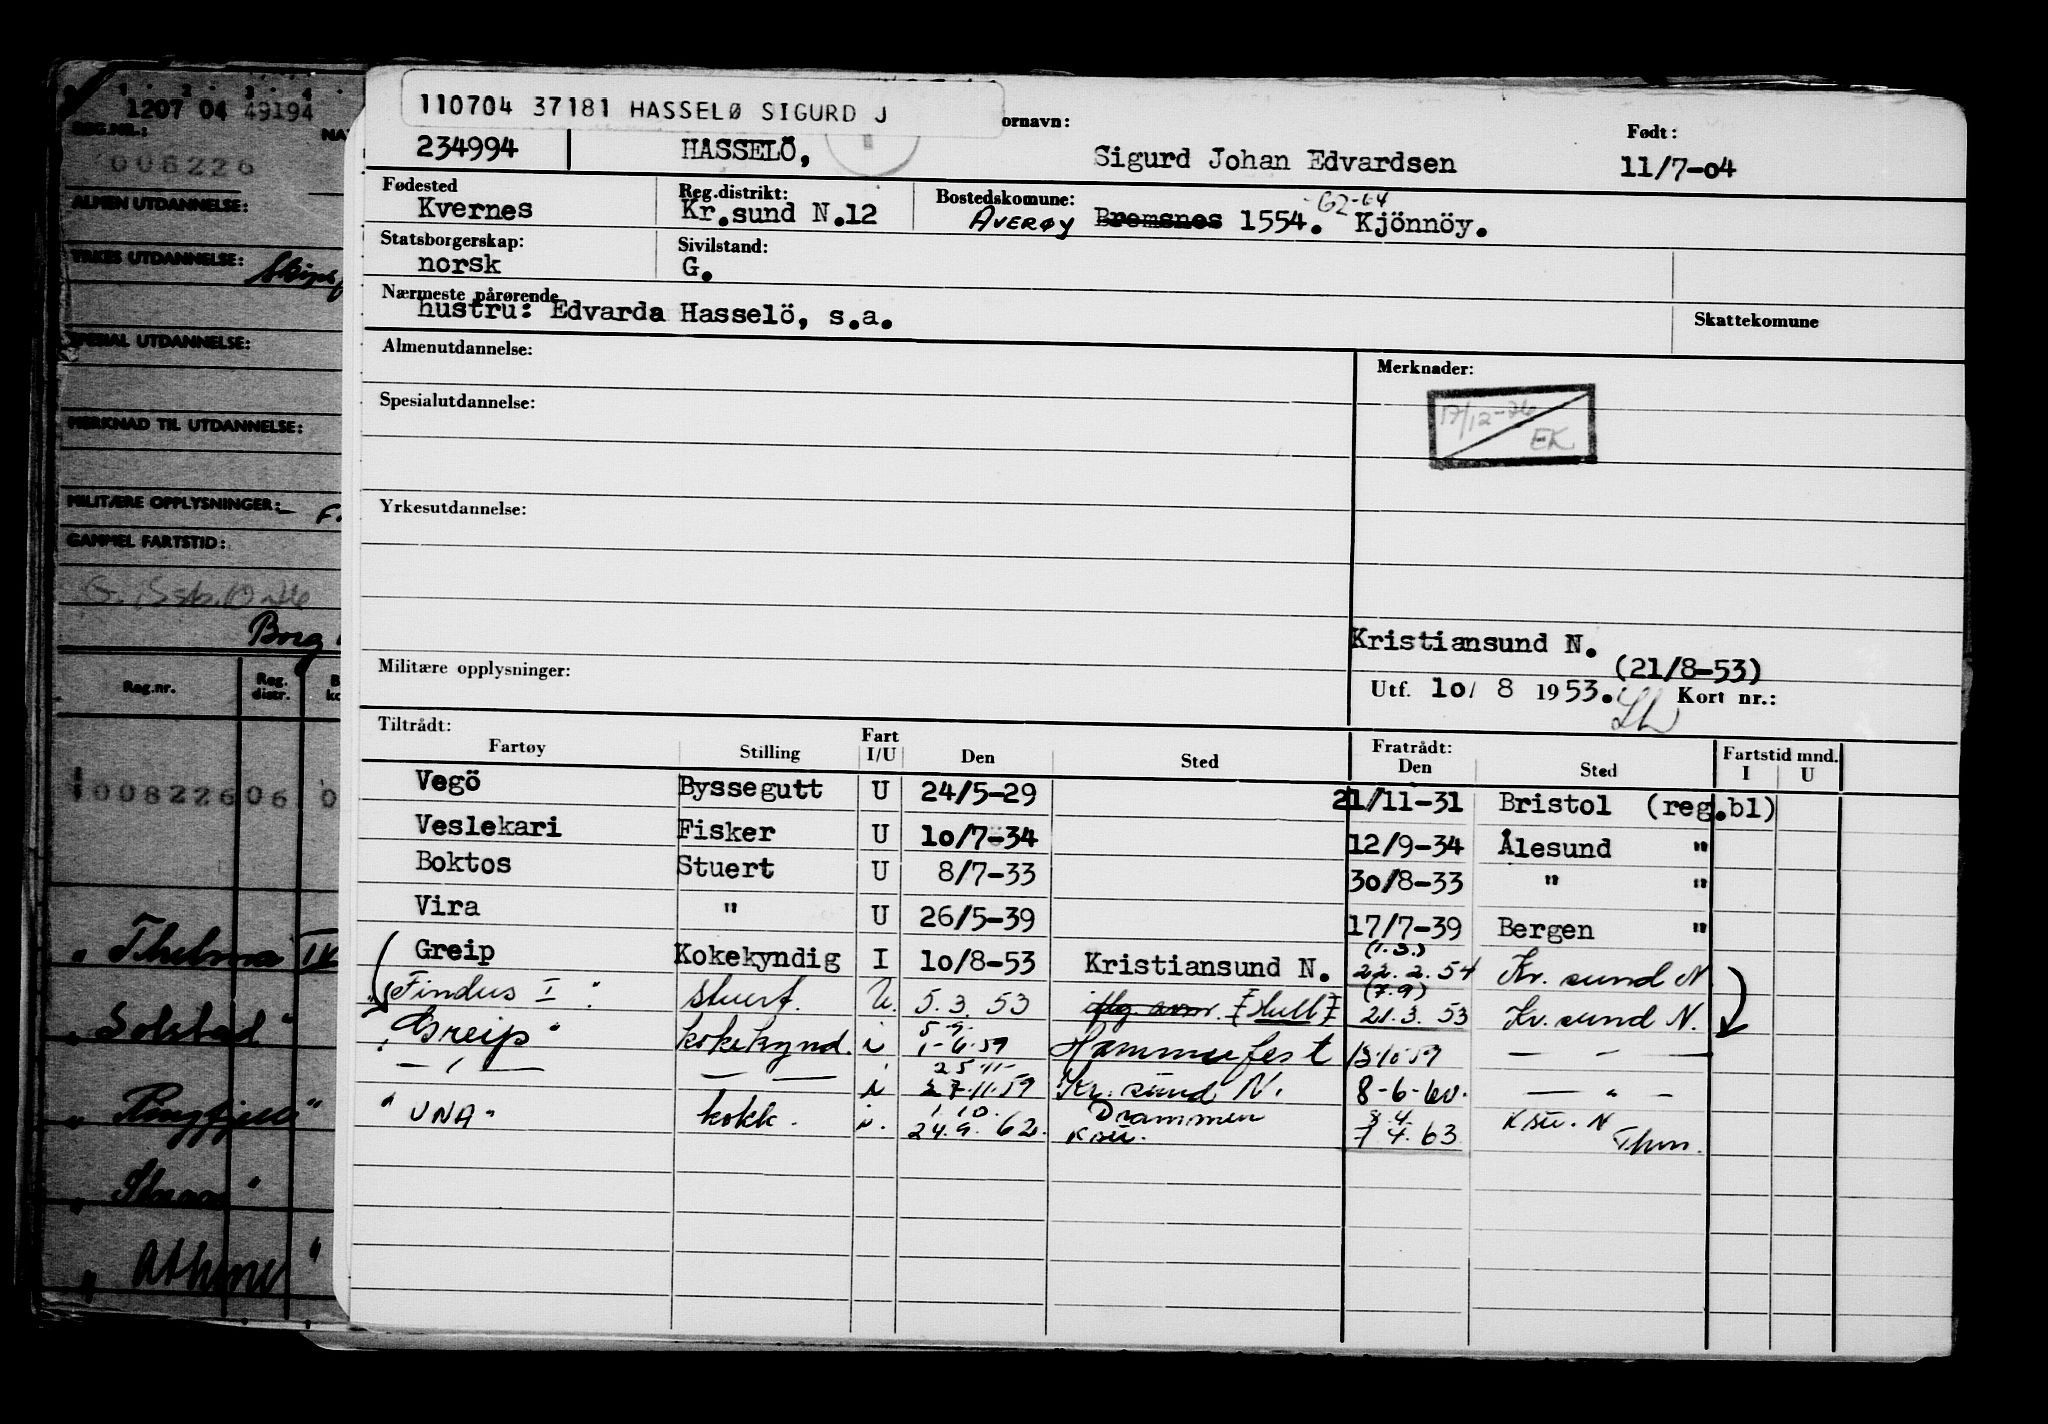 1207 04 49194
REG.NR.:
008226
ALMEN UTDANNELSE:
YRKES UTDANNELSE:
SPESIAL UTDANNELSE:
MERKNAD TIL UTDANNELSE:
MILITÆRE OPPLYSNINGER:
GAMMEL FARTSTID:
Borg
Reg.nr. Reg. distr.
100822606 0
" Thelma IV
" Solstad "
" Kongsfjell "
" "
" Athene "
110704 37181 HASSELØ SIGURD J
ornavn: Født:
234994 HASSELÖ, Sigurd Johan Edvardsen 11/7-04
Fødested Reg.distrikt: Bostedskomune: -62-64
Kvernes Kr.sund N.12 AVERØY Bremsnes 1554. Kjönnöy.
Statsborgerskap: Sivilstand:
norsk G.
Nærmeste pårørende
hustru: Edvarda Hasselö, s.a. Skattekomune
Almenutdannelse: Merknader:
Spesialutdannelse: 17/12-76
EK
Yrkesutdannelse:
Kristiansund N.
Militære opplysninger: (21/8-53)
Utf. 10/ 8 1953. Kort nr.:
Tiltrådt: Fart Fratrådt: Fartstid mnd.
Fartøy Stilling I/U Den Sted Den Sted I U
Vegö Byssegutt U 24/5-29 21/11-31 Bristol (reg.bl)
Veslekari Fisker U 10/7-34 12/9-34 Ålesund "
Boktos Stuert U 8/7-33 30/8-33 " "
Vira " U 26/5-39 17/7-39 Bergen "
(1.3.)
Greip Kokekyndig I 10/8-53 Kristiansund N. 22.2.54 Kr.sund N
(7.9)
"Findus I" stuert. U. 5.3.53 [Hull] 21.3.53 Kr.sund N.
5-9.
"Greip" kokekynd. i 1-6.59 Hammerfest 13.10.59 — - —
25 11-
— / — — — i 27.11.59 Kr.sund N. 8-6-60. — " -
1.10. Drammen 8.4. Ksu. N
"UNA" kokk. i. 24.9.62. Ksu. 7 4.63 Thm.